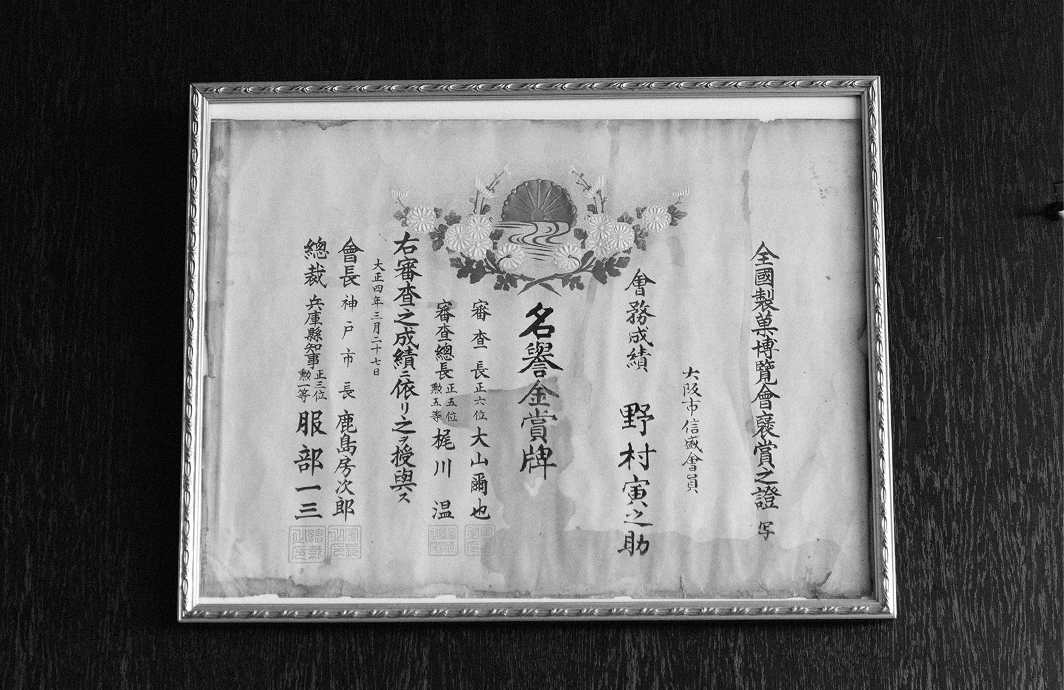 全國製菓博覽會褒賞之證 写
大阪市信盛會員
會務成績 野村寅之助
名譽金賞牌
審査長 正六位 大山爾也
審査總長 正五位 勲五等 梶川温
右審査之成績ニ依リ之ヲ授與ス
大正四年三月二十七日
會長 神戸市長 鹿島房次郎
總裁 兵庫縣知事 正三位 勲一等 服部一三